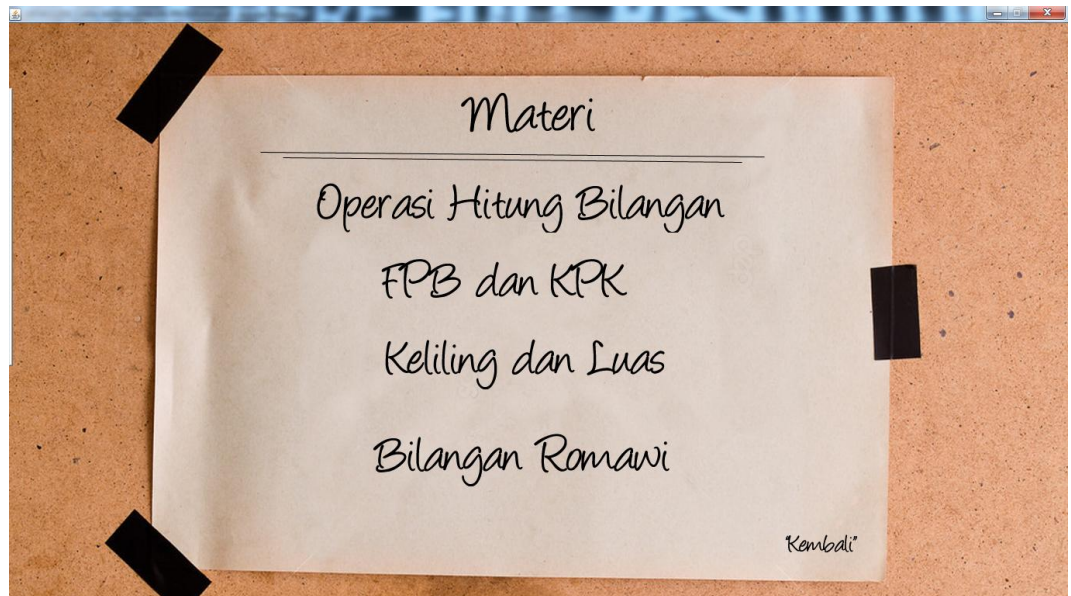 Materi
Operasi Hitung Bilangan
FPB dan KPK
Keliling dan Luas
Bilangan Romawi
"Kembali"